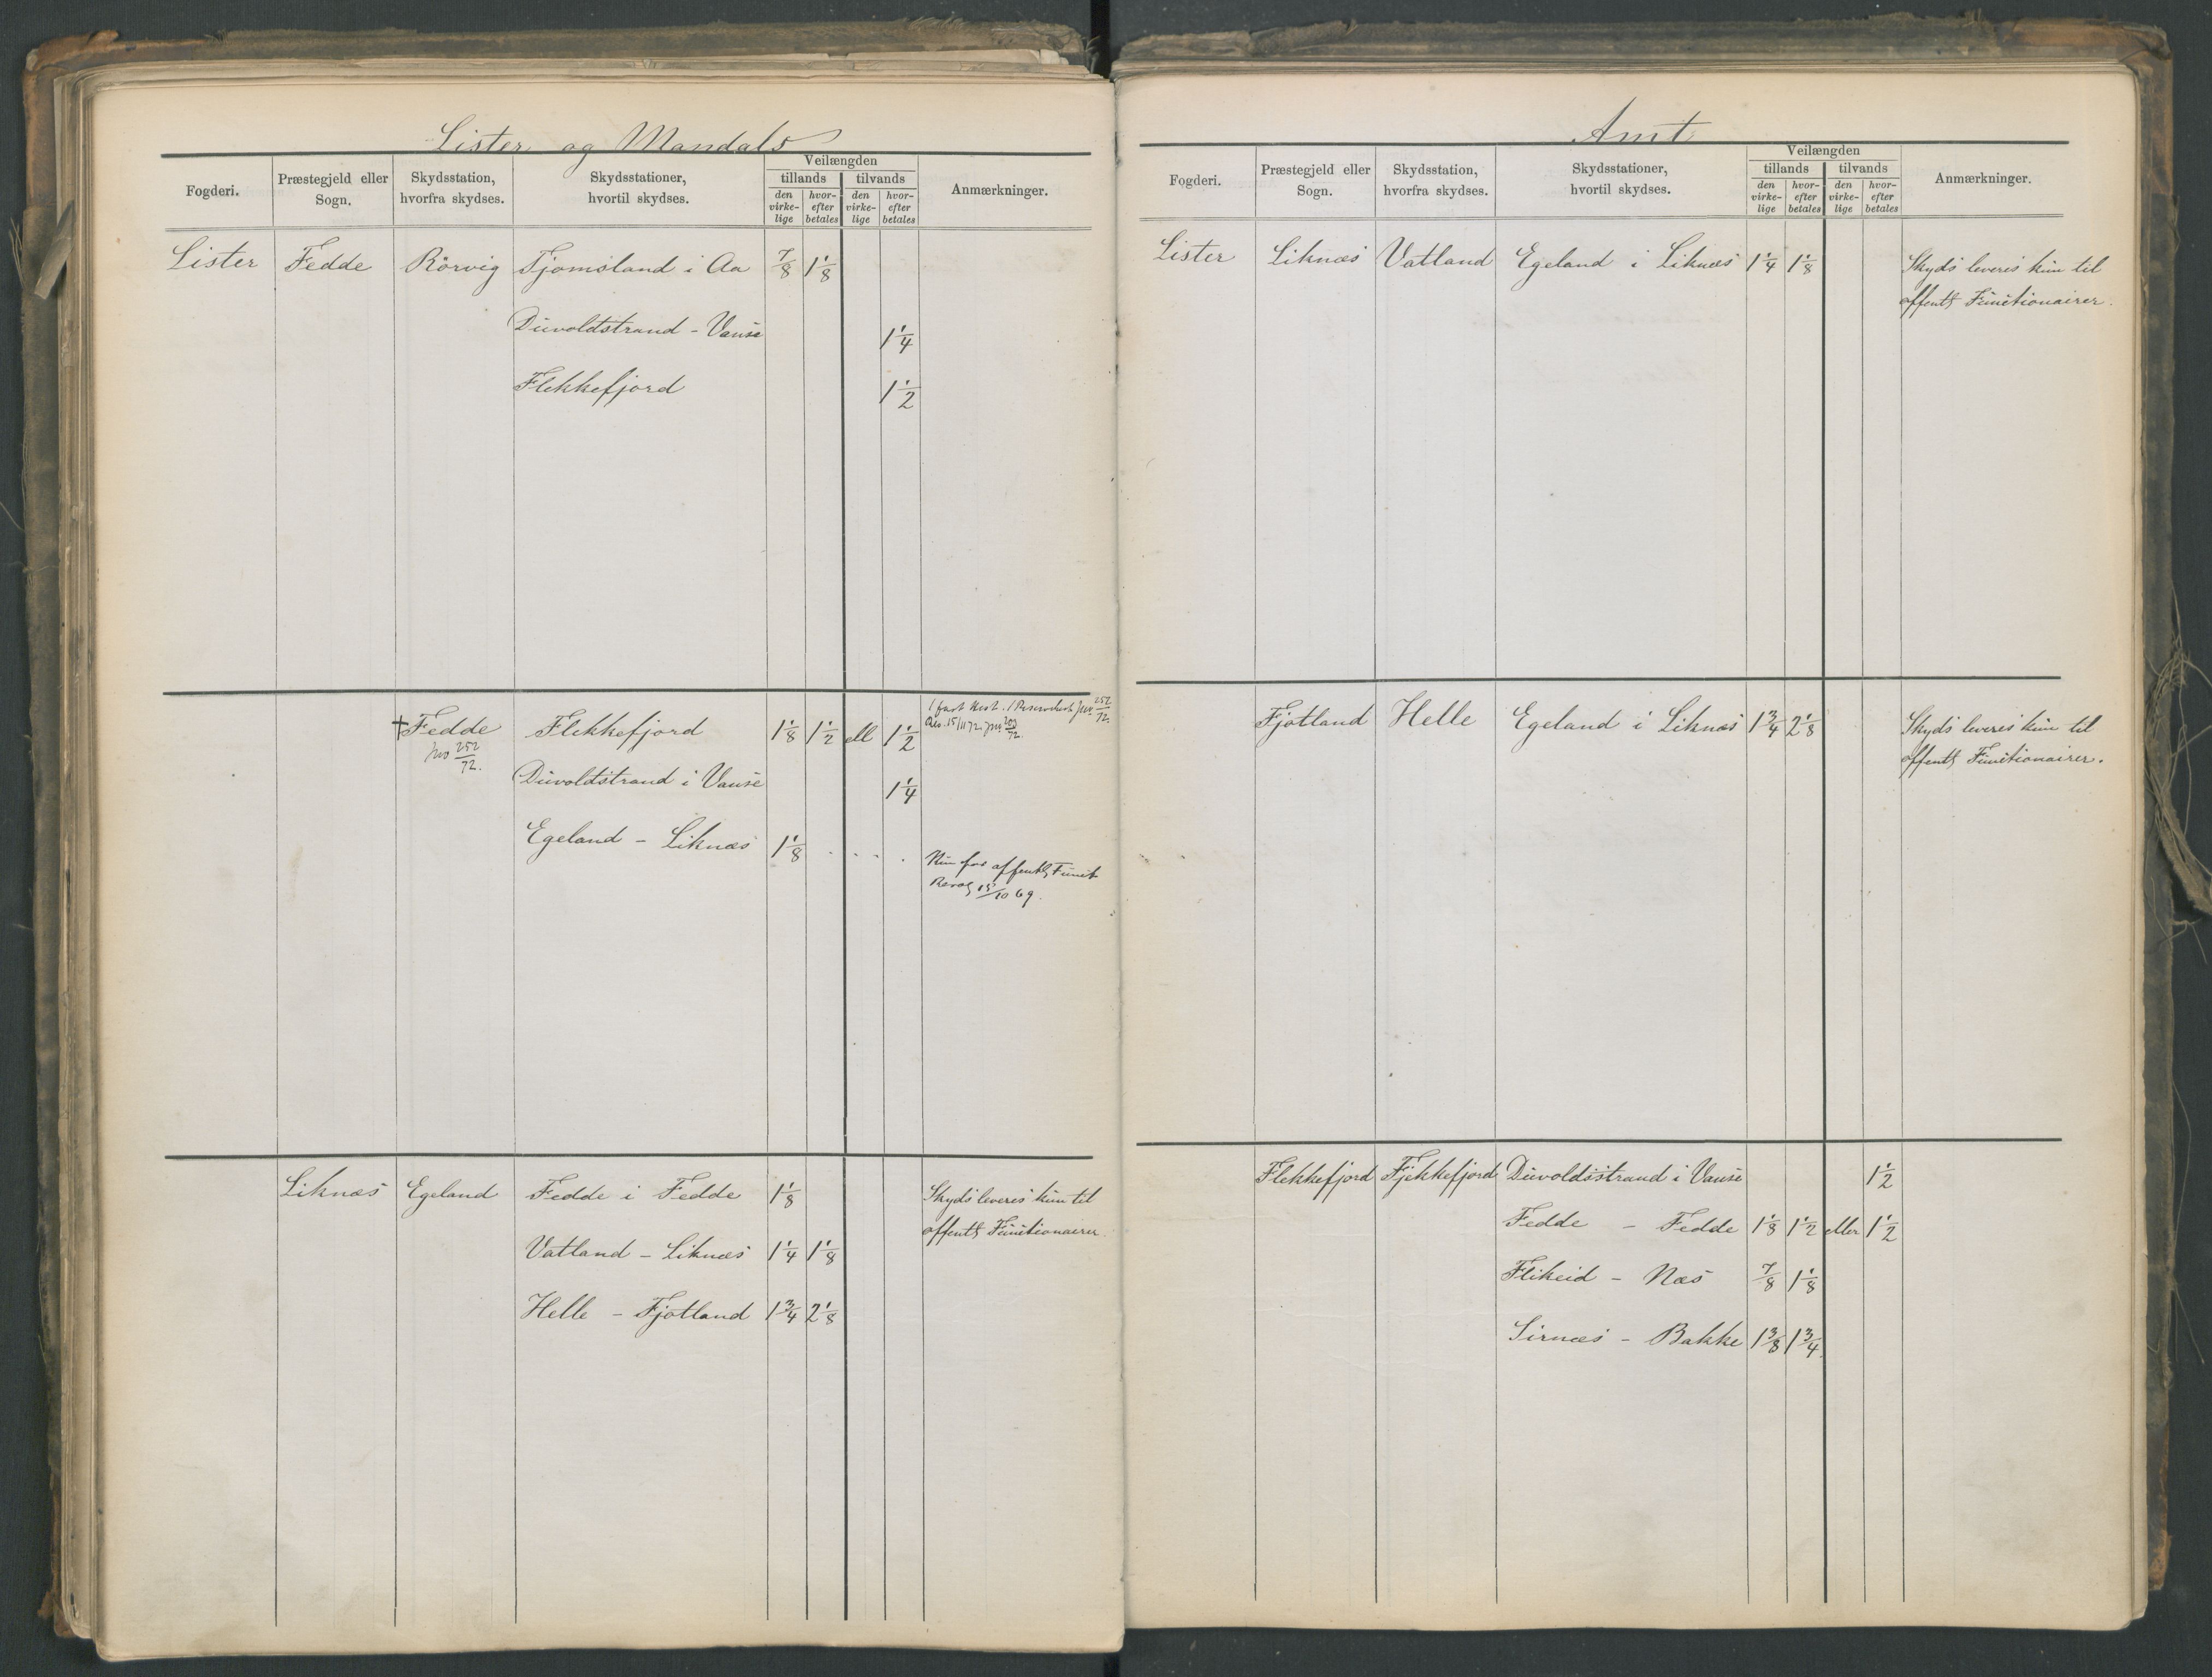 Lister og Mandals
Fogderi.
Præstegjeld eller
Sogn.
Skydsstation,
hvorfra skydses.
Skydsstationer,
hvortil skydses.
Veilængden
tillands
tilvands
den virke-lige
hvor-efter betales
den virke-lige
hvor-efter betales
Anmærkninger.
Lister Fedde Rörvig Tjomsland i Aa 7/8 1 1/8
Duvoldstrand - Vanse 1 1/4
Flekkefjord 1 1/2
†Fedde Flekkefjord 1 1/8 1 1/2 ell 1 1/2
252/72.
1 fast Hest. 1 Reservehest 252/72.
Res. 15/11 72
Duvoldstrand i Vanse 1 1/4
Egeland - Liknæs 1 1/8 . . . .
Kun for offentl Funct
15/10 69.
Liknæs Egeland Fedde i Fedde 1 1/8 Skyds leveres kun til
offentl Functionairer.
Vatland - Liknæs 1 1/4 1 1/8
Helle - Fjotland 1 3/4 2 1/8
Amt
Fogderi.
Præstegjeld eller
Sogn.
Skydsstation,
hvorfra skydses.
Skydsstationer,
hvortil skydses.
Veilængden
tillands
tilvands
den virke-lige
hvor-efter betales
den virke-lige
hvor-efter betales
Anmærkninger.
Lister Liknæs Vatland Egeland i Liknæs 1 1/4 1 1/8 Skyds leveres kun til
offentl Functionairer.
Fjotland Helle Egeland i Liknæs 1 3/4 2 1/8 Skyds leveres kun til
offentl Functionairer.
Flekkefjord Fjekkefjord Duvoldsstrand i Vanse 1 1/2
Fedde - Fedde 1 1/8 1 1/2 eller 1 1/2
Flikeid - Næs 7/8 1 1/8
Sirnæs - Bakke 1 3/8 1 3/4.